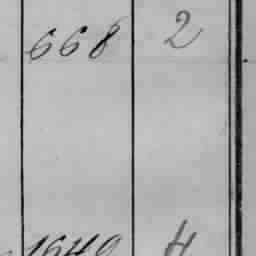 668 2
1649 4